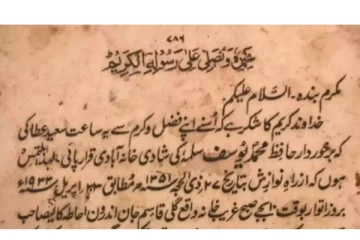 ۷۸۶
نحمدہ ونصلی علی رسولہ الکریم
مکرم بندہ - السلام علیکم
خداوند کریم کا شکر ہے کہ اُسنے اپنے فضل و کرم سے یہ ساعت سعید عطا کی
کہ برخوردار حافظ محمد یوسف سلمہ کی شادی خانہ آبادی قرار پائی
ہوں کہ ازراہ نوازش بتاریخ ۲۷ ذی الحجہ ۱۳۵۱ھ مطابق ۲۳ اپریل ۱۹۳۳ء
بروز اتوار بوقت ۱۰ بجے صبح غریب خانہ واقع گلی قاسم جان اندرون احاطہ کالیصاحب